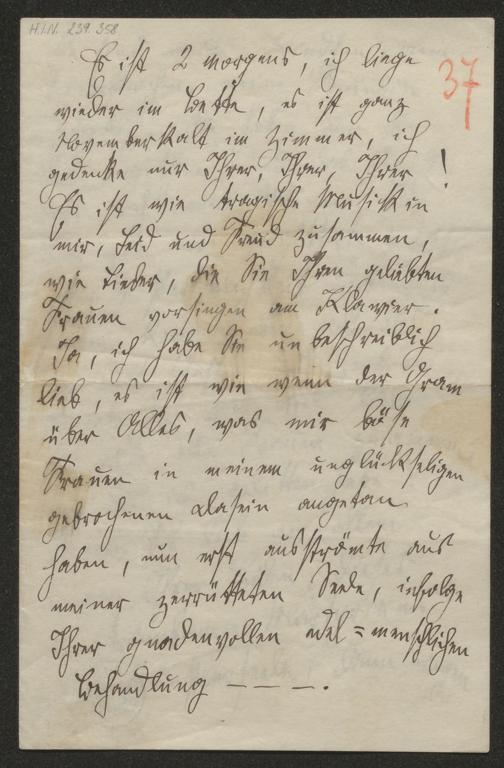 H.I.N. 239.358
37
Es ist 2 morgens, ich liege
wieder im Bette, es ist ganz
novemberkalt im Zimmer, ich
gedenke nur Ihrer, Ihrer, Ihrer!
Es ist wie tragische Musik in
mir, Leid und Freud zusammen,
wie Lieder, die Sie Ihren geliebten
Frauen vorsingen am Klavier.
Ja, ich habe Sie unbeschreiblich
lieb, es ist wie wenn der Gram
über Alles, was mir böse
Frauen in meinem unglückseligen
gebrochenen Dasein angetan
haben, nun erst ausströmte aus
meiner zerrütteten Seele, infolge
Ihrer gnadenvollen edel=menschlichen
Behandlung — — — .